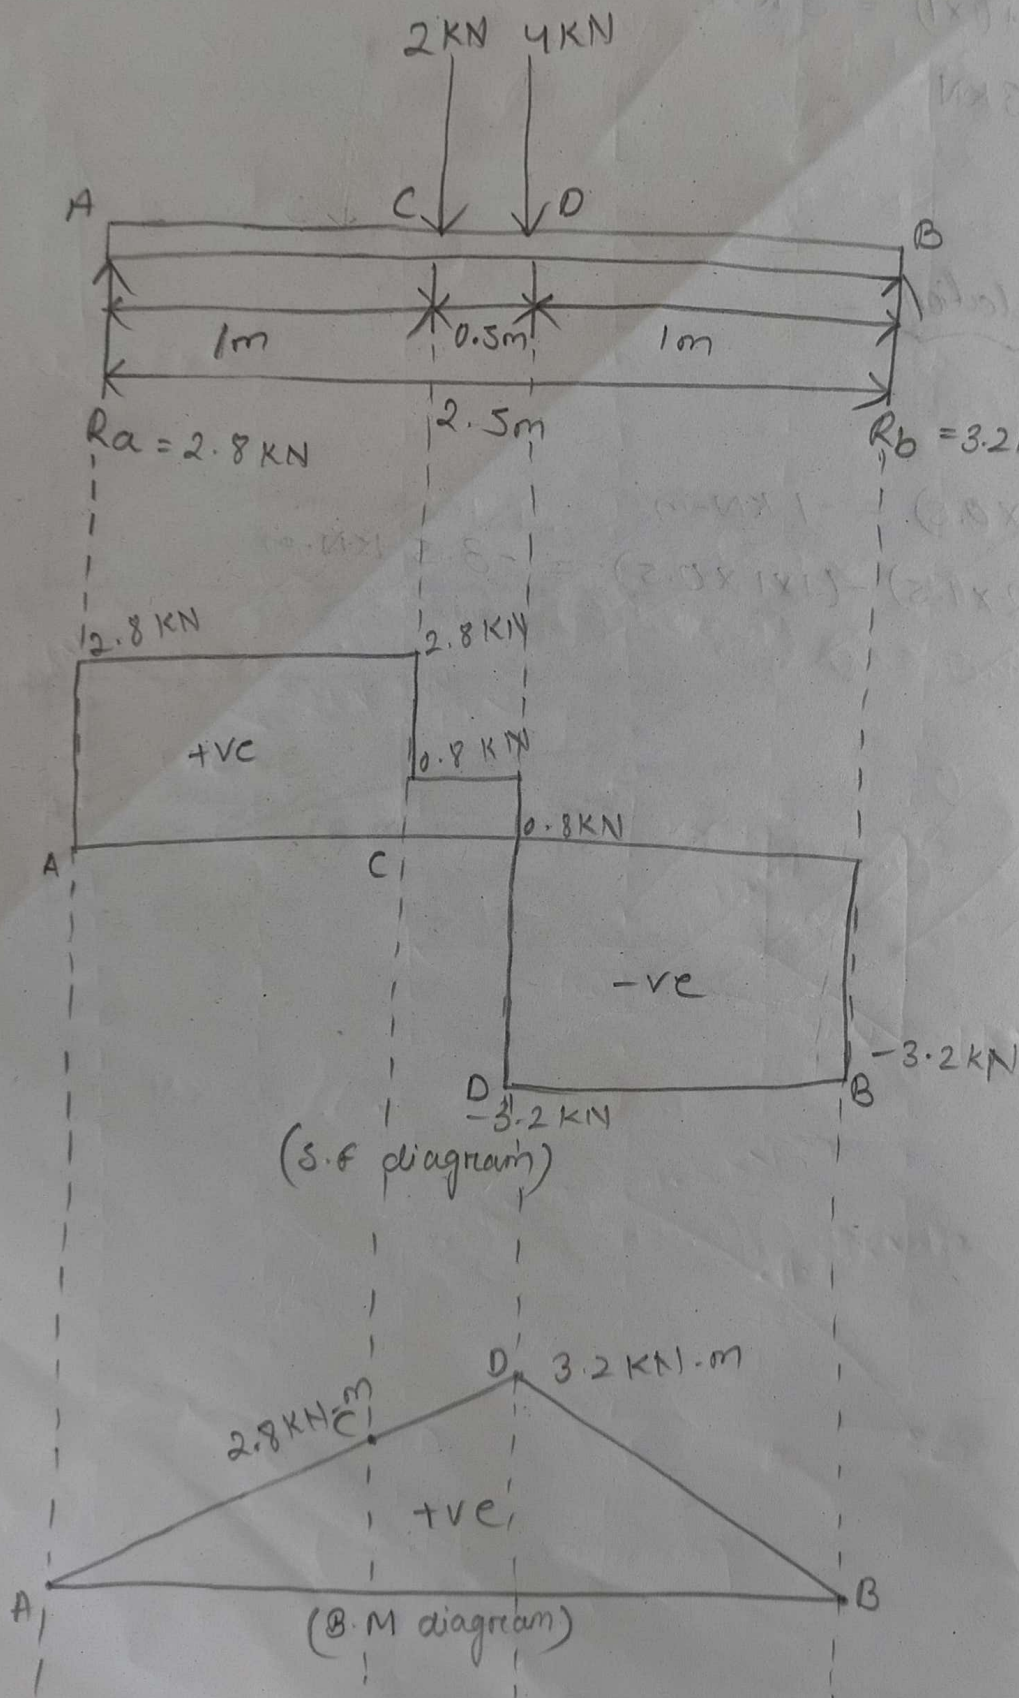 2KN 4KN
A C D B
1m 0.5m 1m
2.5m
Ra = 2.8 KN Rb = 3.2
2.8 KN 2.8 KN
+ve 0.8 KN
0.8KN
A C
-ve
-3.2 KN
D B
-3.2 KN
(S.F diagram)
D 3.2 KN-m
2.8KN-m
C
+ve
A B
(B.M diagram)